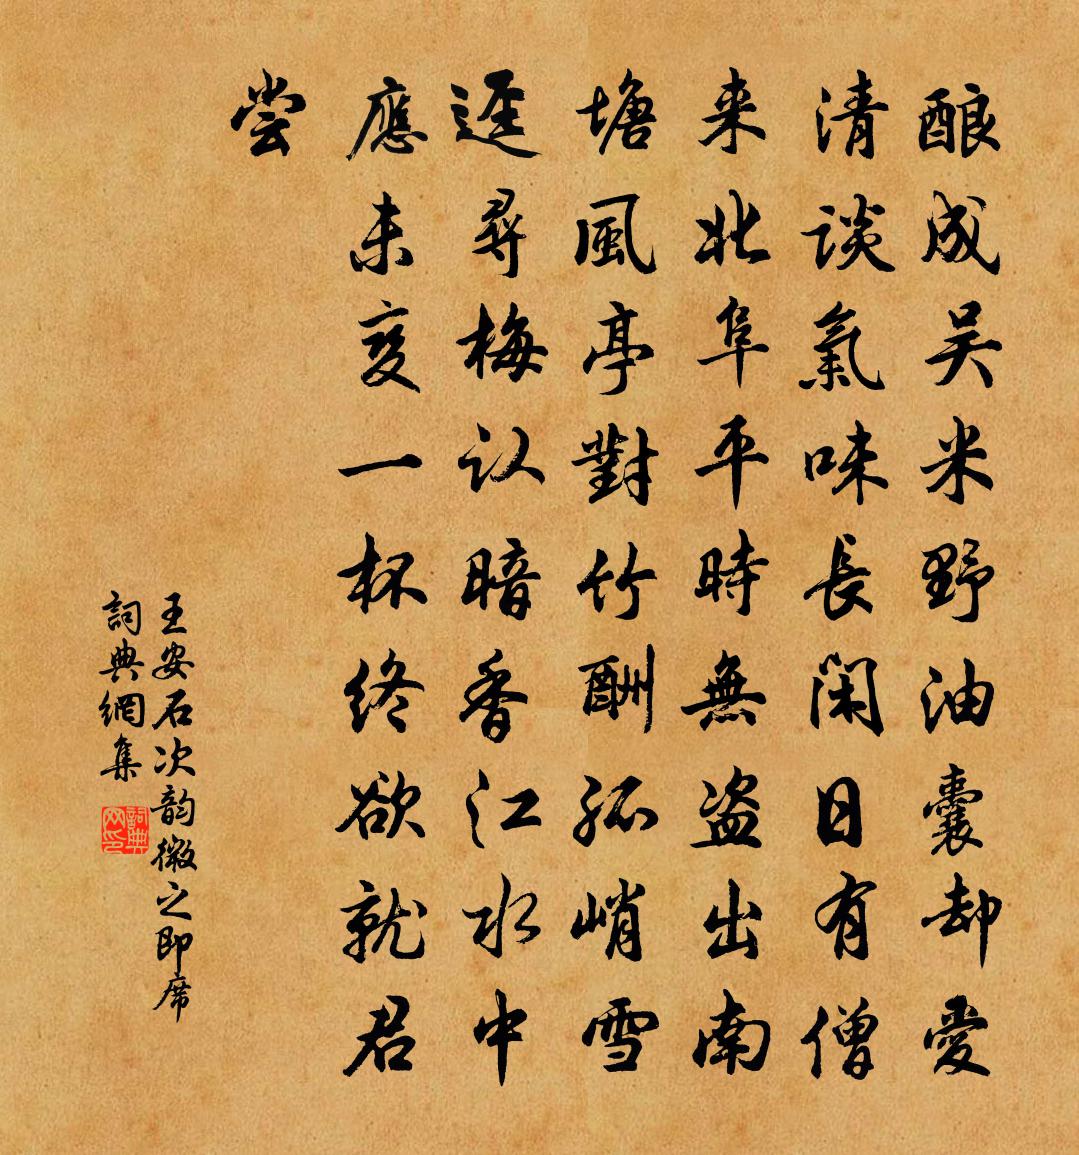 酿成吴米野油囊却愛
清談氣味長閑日有僧
来北阜平時無盗出南
塘風亭對竹酬孤峭雪
逕尋梅认暗香江水中
應未变一杯终欲就君
尝
王安石次韵微之即席
詞典網集
詞典网印